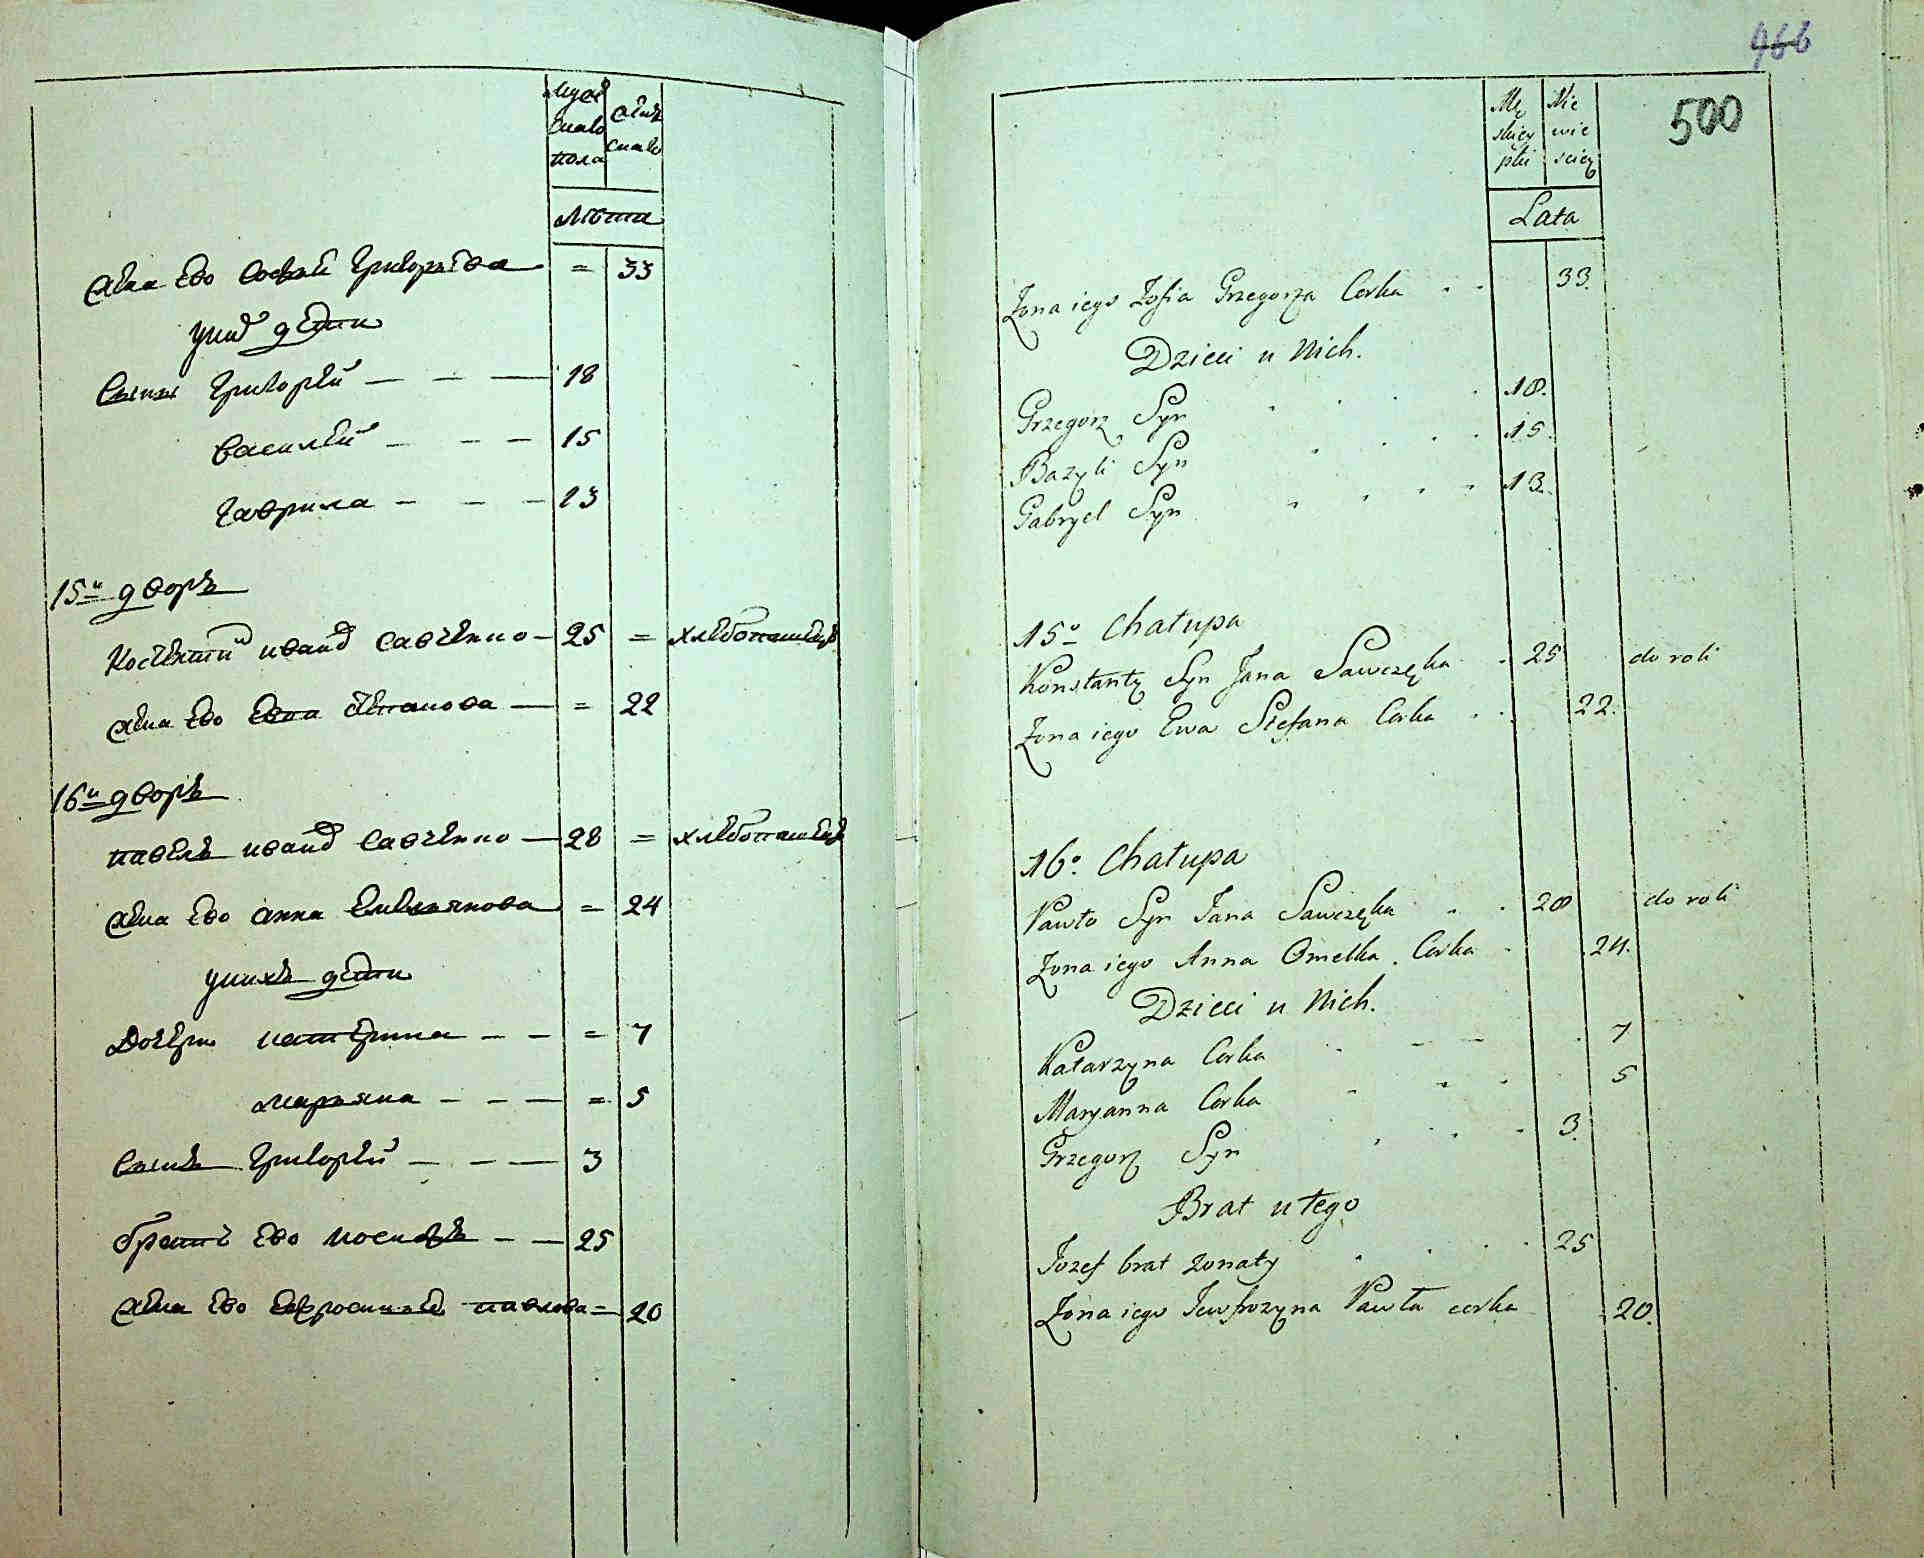 Мужеска пола
женска
Лѣта
жена ево Софья Григорьева = 33
у них дети
Сыны Григорей — — — 18
Василей — — — 15
Гаврила — — — 13
15й дворъ
Костентин иванов Савченко — 25 = хлебопашецъ
жена ево Евва Степанова — = 22
16й дворъ
павелъ иванов Савченко — 28 = хлебопашецъ
жена ево анна Емельянова = 24
у нихъ дети
Дочери катерина — — = 7
марьяна — — — = 5
Сынъ Григорей — — — 3
братъ ево иосифъ — — 25
жена ево Евфросинья павлова = 20
466
500
Męskiey płci
Niewiesciey
Lata
Zona iego Zofia Grzegorza Corka . . 33.
Dzieci u Nich.
Grzegorz Syn . . . . 18.
Bazyli Syn . . . . 15.
Gabryel Syn . . . . 13.
15o Chałupa
Konstanty Syn Jana Sawczęka . . 25 do roli
Zona iego Ewa Stefana Corka . . 22.
16o Chałupa
Pawło Syn Jana Sawczęka . . 28 do roli
Zona iego Anna Omelka Corka . 24.
Dzieci u Nich.
Katarzyna Corka . . . . 7
Maryanna Corka . . . 5
Grzegorz Syn . . . . 3.
Brat u tego
Jozef brat zonaty . . . . 25
Zona iego Jewfrozyna Pawła corka 20.